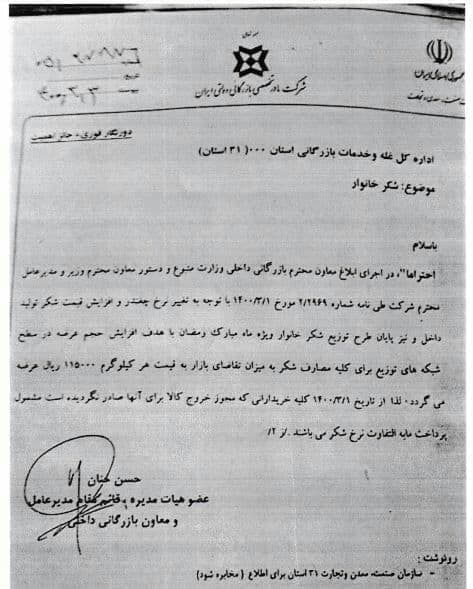 شرکت مادر تخصصی بازرگانی دولتی ایران
جمهوری اسلامی ایران
دورنگار فوری - حائز اهمیت
اداره کل غله و خدمات بازرگانی استان ۰۰۰( ۳۱ استان)
موضوع: شکر خانوار
باسلام
احتراما"، در اجرای ابلاغ معاون محترم بازرگانی داخلی وزارت متبوع و دستور معاون محترم وزیر و مدیرعامل
محترم شرکت طی نامه شماره ۲/۲۹۶۹ مورخ ۱۴۰۰/۳/۱ با توجه به تغییر نرخ چغندر و افزایش قیمت شکر تولید
داخل و نیز پایان طرح توزیع شکر خانوار ویژه ماه مبارک رمضان با هدف افزایش حجم عرضه در سطح
شبکه های توزیع برای کلیه مصارف شکر به میزان تقاضای بازار به قیمت هر کیلوگرم ۱۱۵۰۰۰ ریال عرضه
می گردد، لذا از تاریخ ۱۴۰۰/۳/۱ کلیه خریدارانی که مجوز خروج کالا برای آنها صادر نگردیده است مشمول
پرداخت مابه التفاوت نرخ شکر می باشند ./ز ۲/
حسن حنان
عضو هیات مدیره و قائم مقام مدیرعامل
و معاون بازرگانی داخلی
رونوشت :
- سازمان صنعت، معدن وتجارت ۳۱ استان برای اطلاع ( مخابره شود)